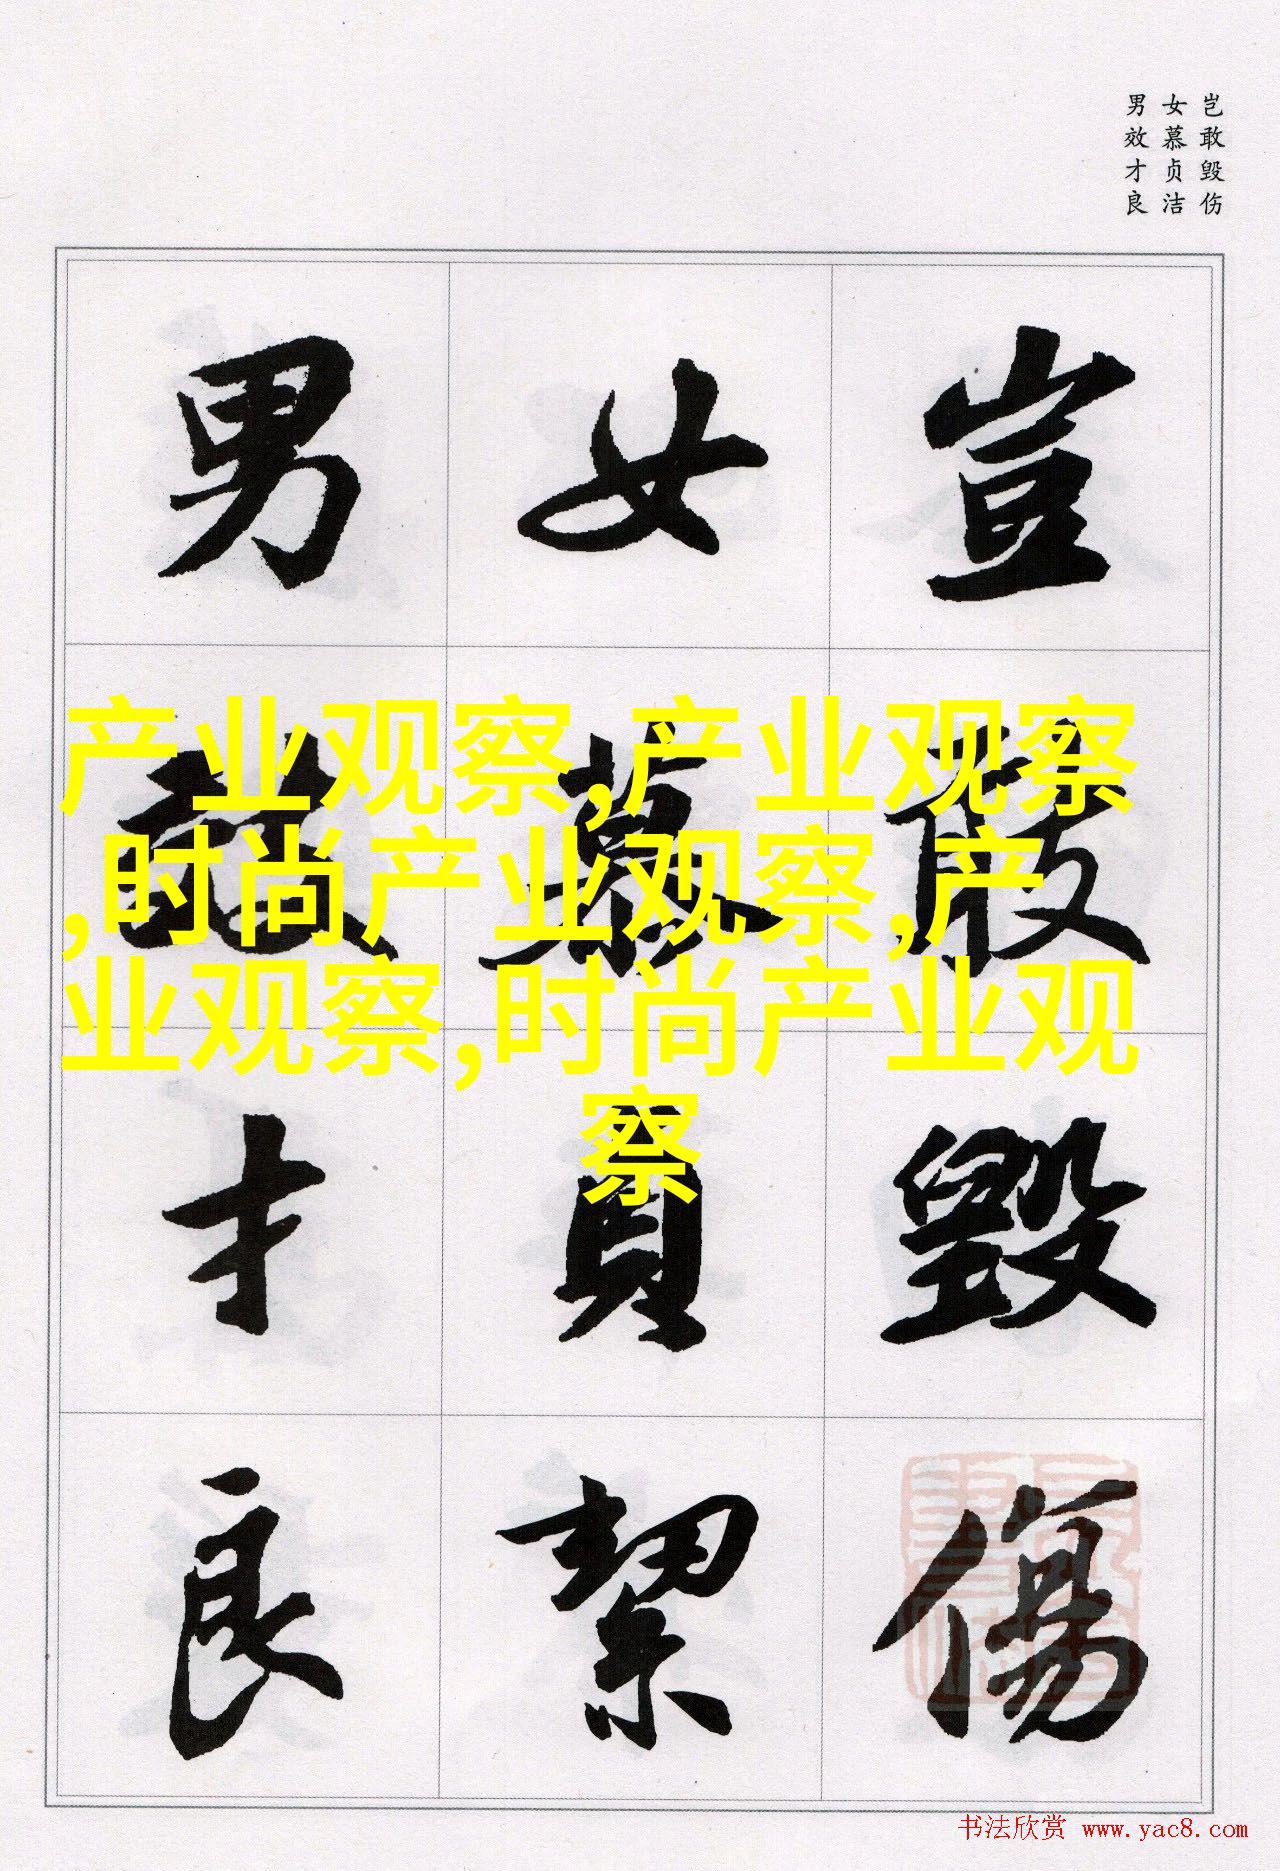 岂敢毁伤
女慕贞洁
男效才良
豈敢毀傷
女慕貞絜
男效才良
产业观察,产业观察
,时尚产业观察,产
业观察,时尚产业观
察
书法欣赏 www.yac8.com